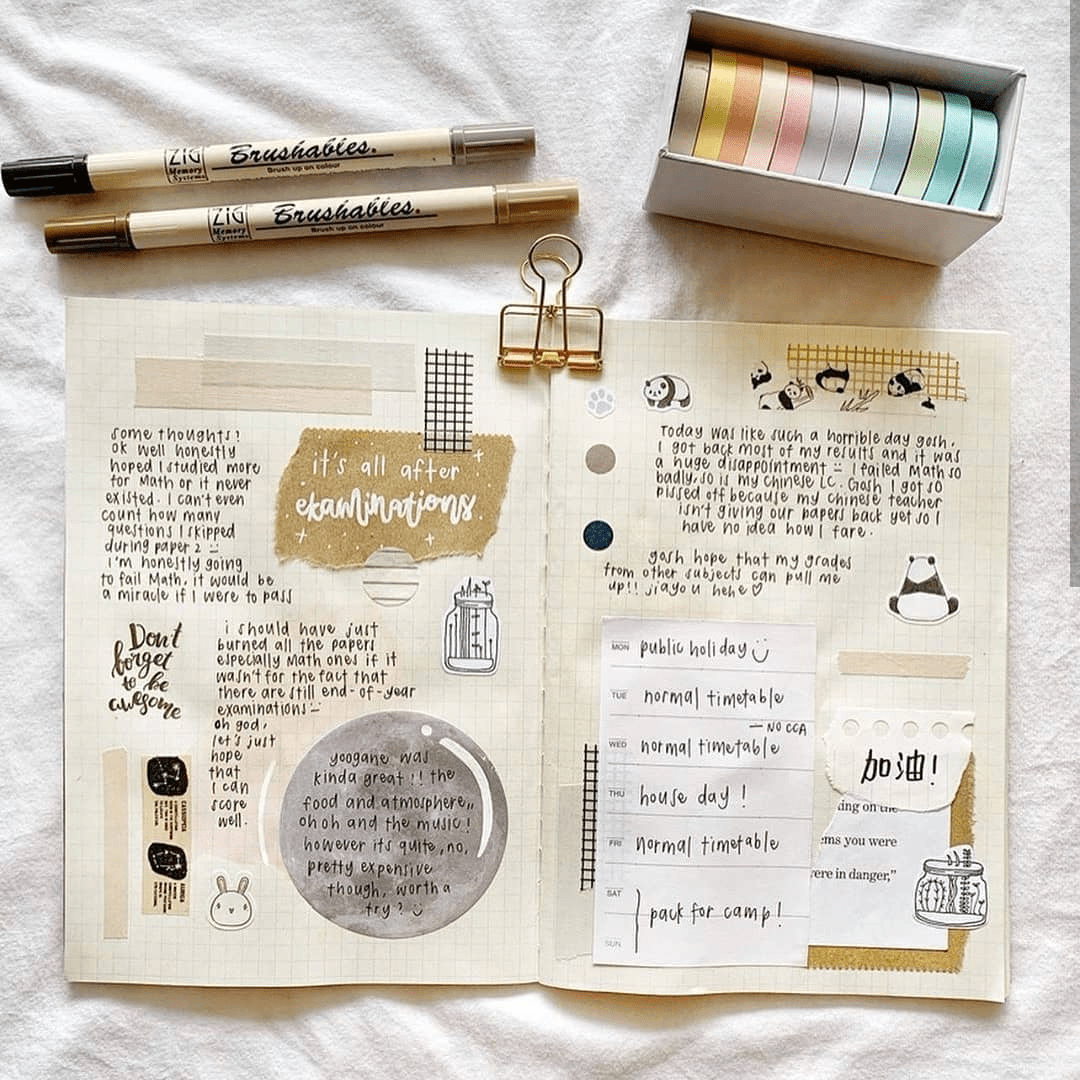 ZIG
Memory
Systems
Brushables.
Brush up on colour
ZIG
Memory
Systems
Brushables.
Brush up on colour
some thoughts?
ok well honestly
hoped I studied more
for Math or it never
existed. I can't even
count how many
questions I skipped
during paper 2
I'm honestly going
to fail Math, it would be
a miracle if I were to pass
it's all after
examinations
Don't
forget
to be
awesome
i should have just
burned all the papers
especially Math ones if it
wasn't for the fact that
there are still end-of-year
examinations
oh god,
let's just
hope
that
I can
score
well.
CASSIOPEIA
yoogane was
kinda great!! the
food and atmosphere,,
oh oh and the music!
however its quite, no,
pretty expensive
though, worth a
try?
Today was like such a horrible day gosh,
I got back most of my results and it was
a huge disappointment I failed Math so
badly, so is my chinese LC. Gosh I got so
pissed off because my chinese teacher
isn't giving our papers back yet so I
have no idea how I fare.
gosh hope that my grades
from other subjects can pull me
up!! jiayou hehe ♡
MON public holiday
TUE normal timetable
— NO CCA
WED normal timetable
THU house day!
FRI normal timetable
SAT
pack for camp!
SUN
加油!
ing on the
ems you were
ere in danger,”